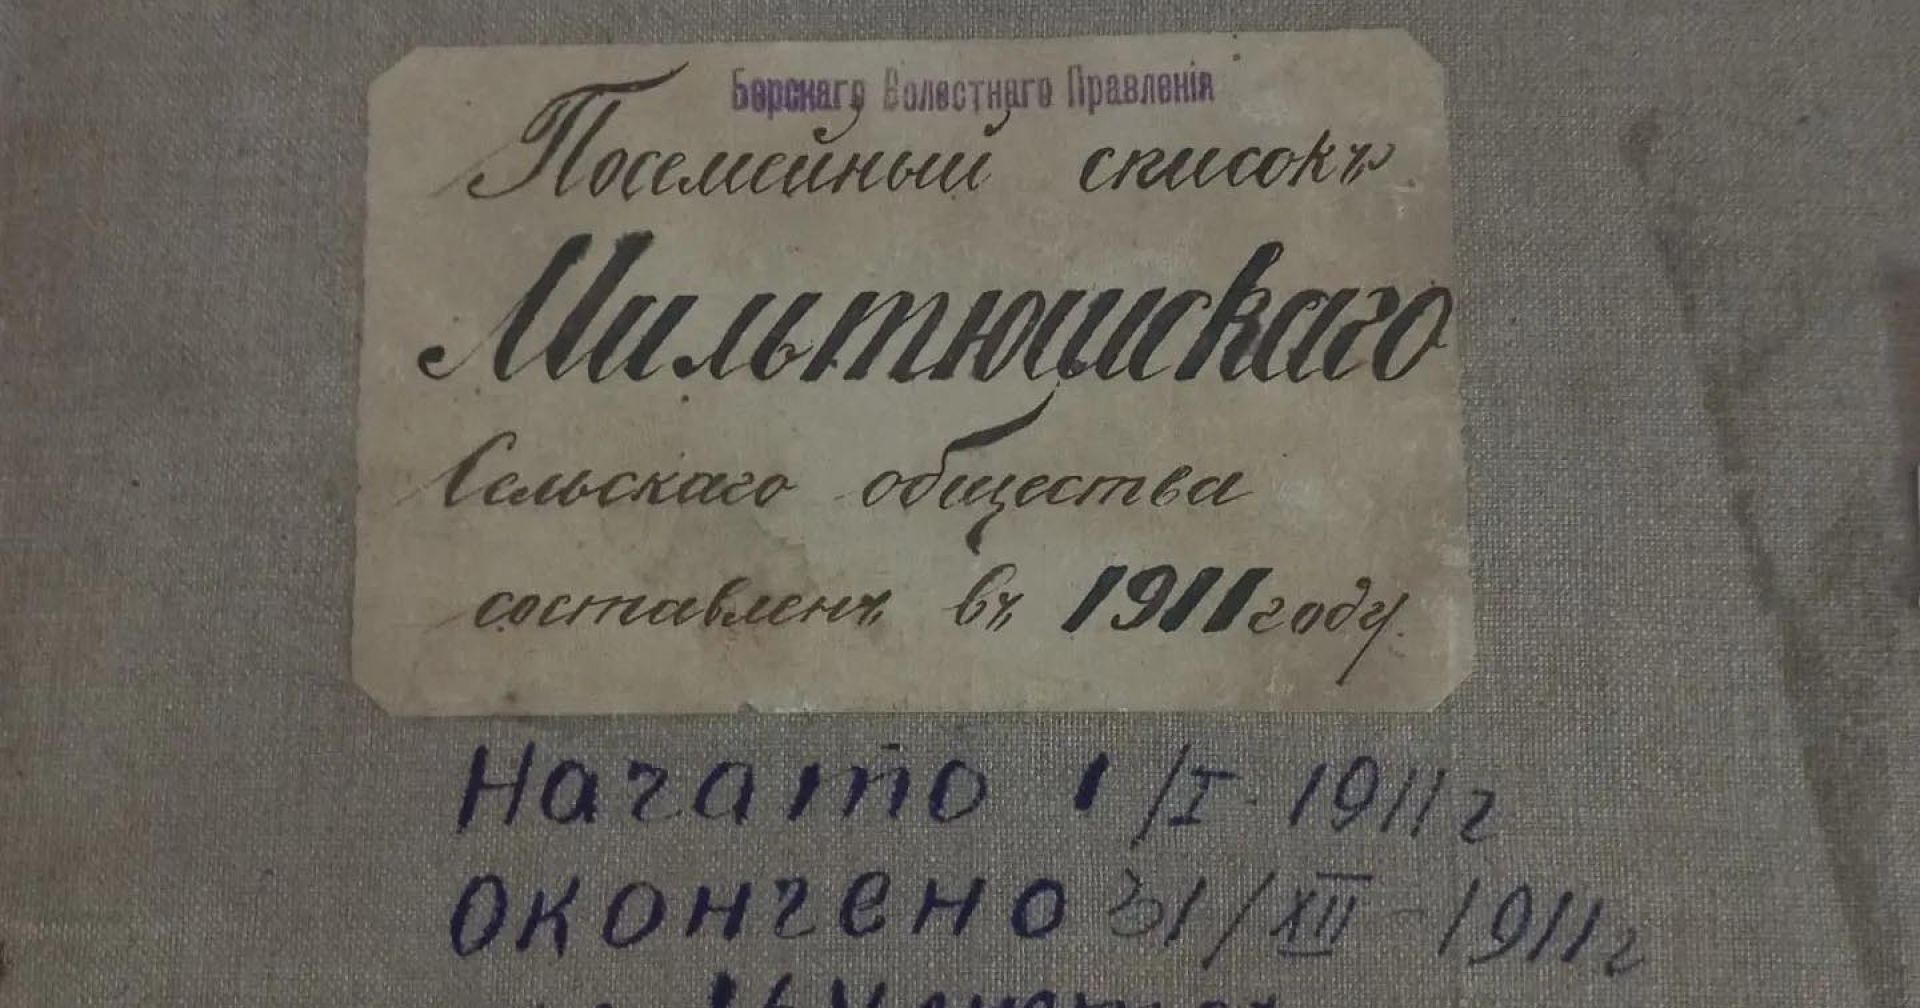 Борскаго Волостного Правленія
Посемейный списокъ
Мильтюшскаго
Сельскаго общества
составленъ въ 1911 году.
Начато 1/I-1911г
окончено 31/XII-1911г